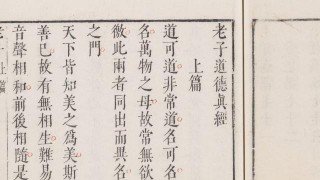 老子道德眞經
上篇
道可道非常道名可名
名萬物之母故常無欲
徼此兩者同出而異名
之門
天下皆知美之爲美斯
善已故有無相生難易
音聲相和前後相隨是